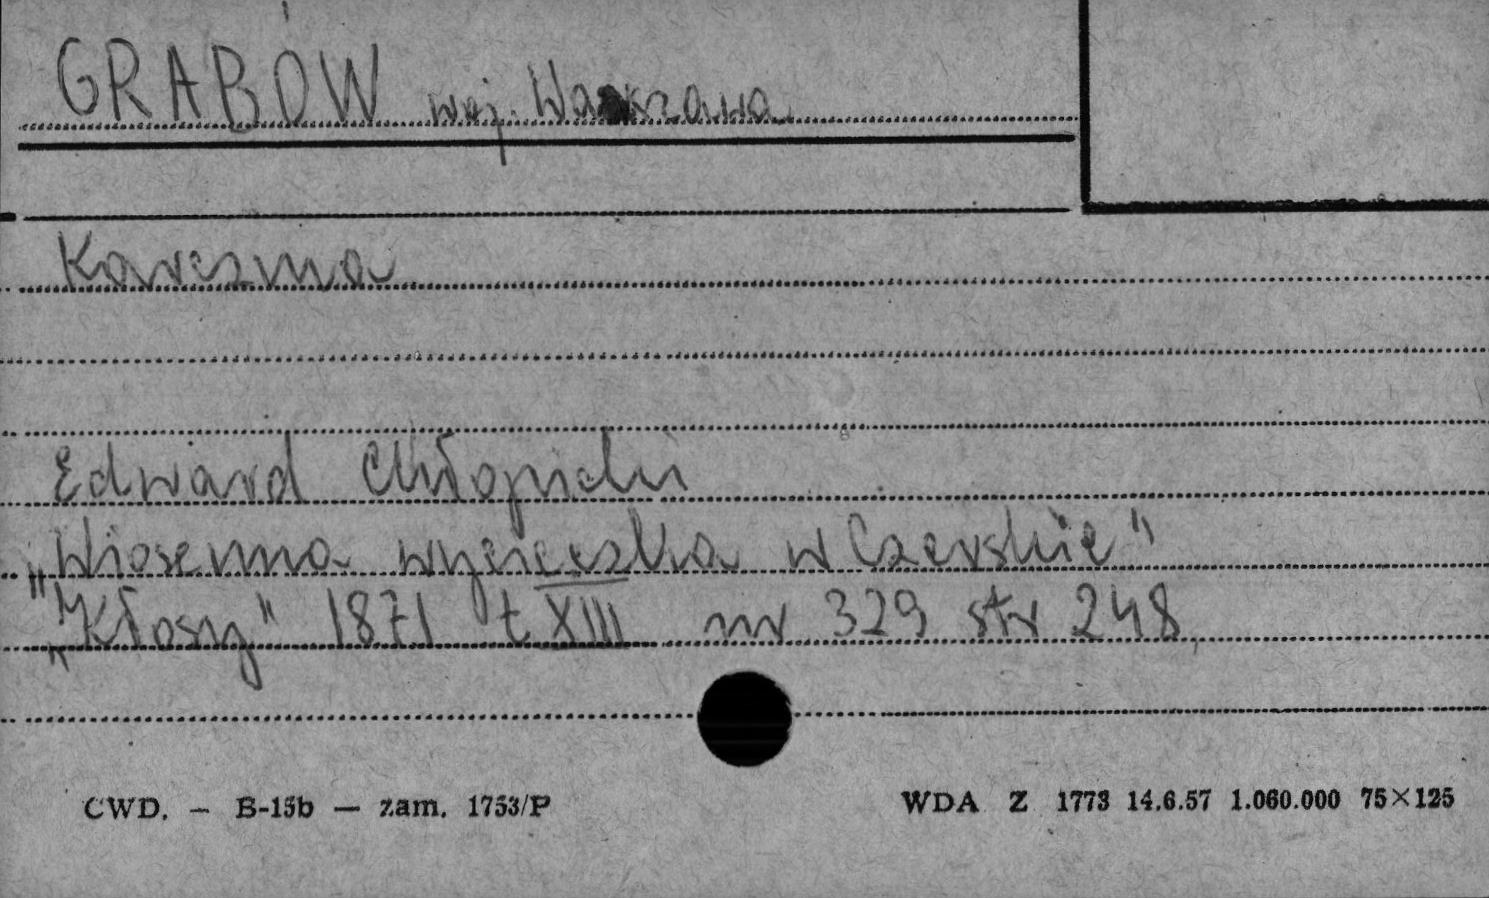 GRABÓW woj. Warszawa
Karczma
Edward Chłopicki
„Wiosenna wycieczka w Czerskie"
„Kłosy" 1871 t XIII nr 329 str 248
CWD. — B-15b — zam. 1753/P
WDA Z 1773 14.6.57 1.060.000 75×125